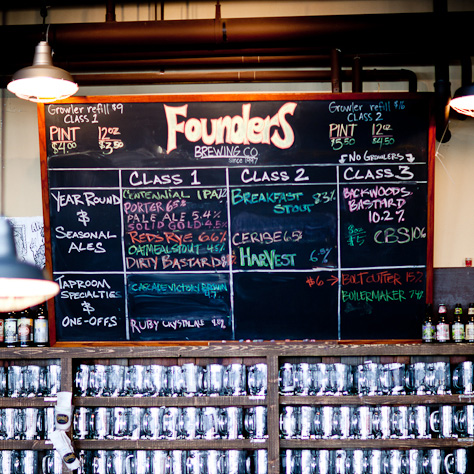 Growler refill $9
CLASS 1
PINT 12oz
$4.00 $3.50
Founders
BREWING CO.
Since 1997
Growler refill
CLASS 2
PINT 12oz
$5.50 $4
NO GROWLERS
CLASS 1
CLASS 2
CLASS 3
YEAR ROUND
&
SEASONAL
ALES
CENTENNIAL IPA
PORTER 6.5%
PALE ALE 5.4%
SOLID GOLD 4.5
RED'S RYE 6.6%
OATMEAL STOUT 4.5
DIRTY BASTARD
BREAKFAST 8.3%
STOUT
CERISE 6.5%
HARVEST
BACKWOODS
BASTARD
10.2%
CBS
TAPROOM
SPECIALTIES
&
ONE-OFFS
CASCADE VICTORY BROWN
4.7
RUBY CRYSTAL ALE
$6 → BOLT CUTTER 15%
BOILERMAKER